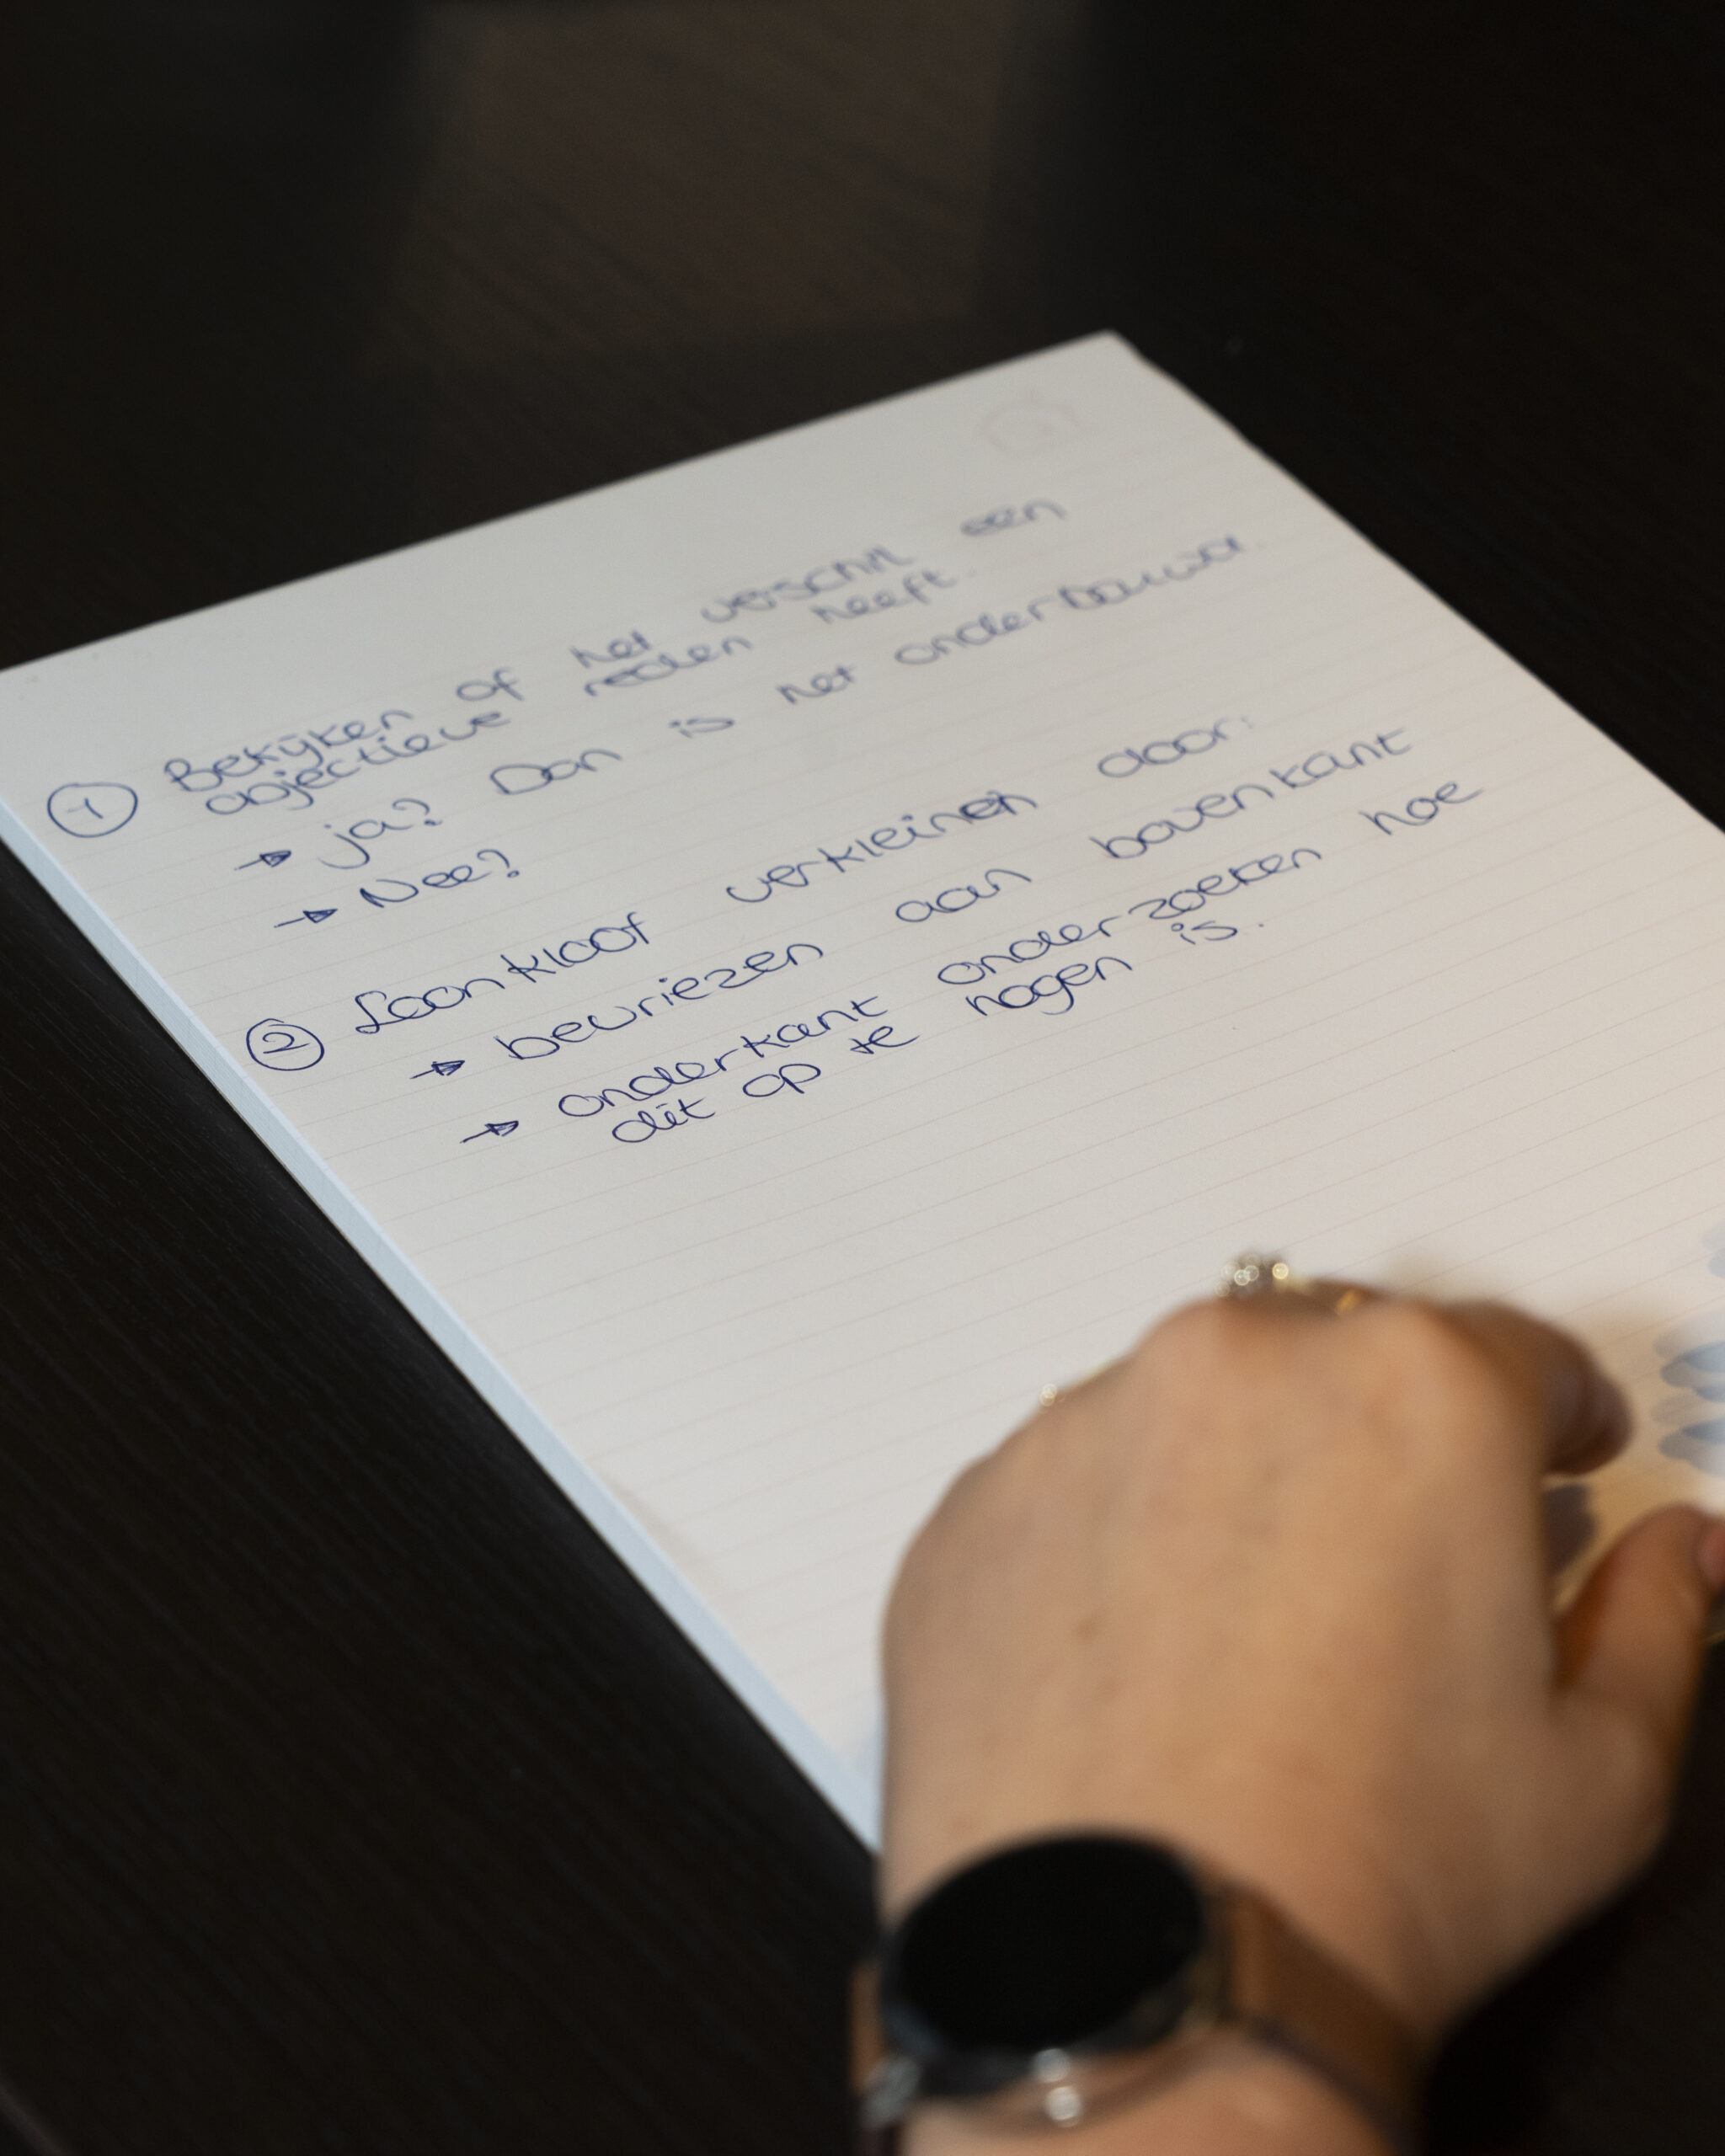 ① Bekijken of het verschil een
objectieve reden heeft.
→ ja? Dan is het onderbouwd.
→ Nee?
② Loonkloof verkleinen door:
→ bevriezen aan bovenkant
→ onderkant onderzoeken hoe
dit op te hogen is.